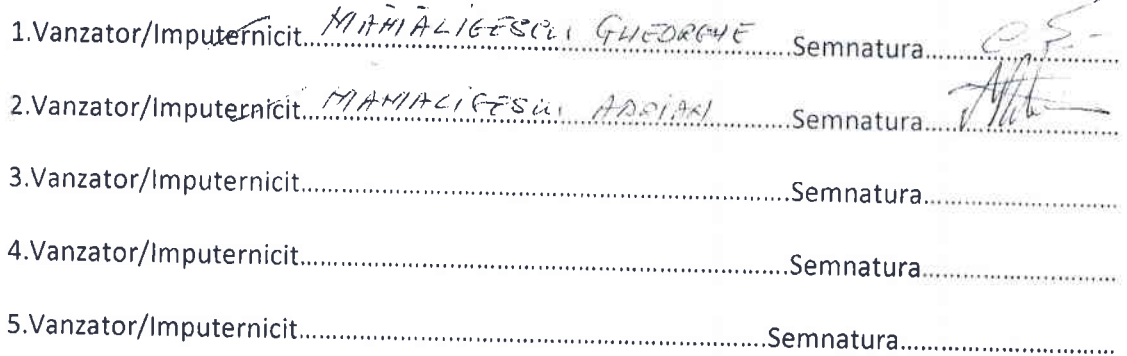 1.Vanzator/Imputernicit....MAMALIGESCU GHEORGHE....Semnatura....
2.Vanzator/Imputernicit....MAMALIGESCU ADRIAN....Semnatura....
3.Vanzator/Imputernicit....Semnatura....
4.Vanzator/Imputernicit....Semnatura....
5.Vanzator/Imputernicit....Semnatura....